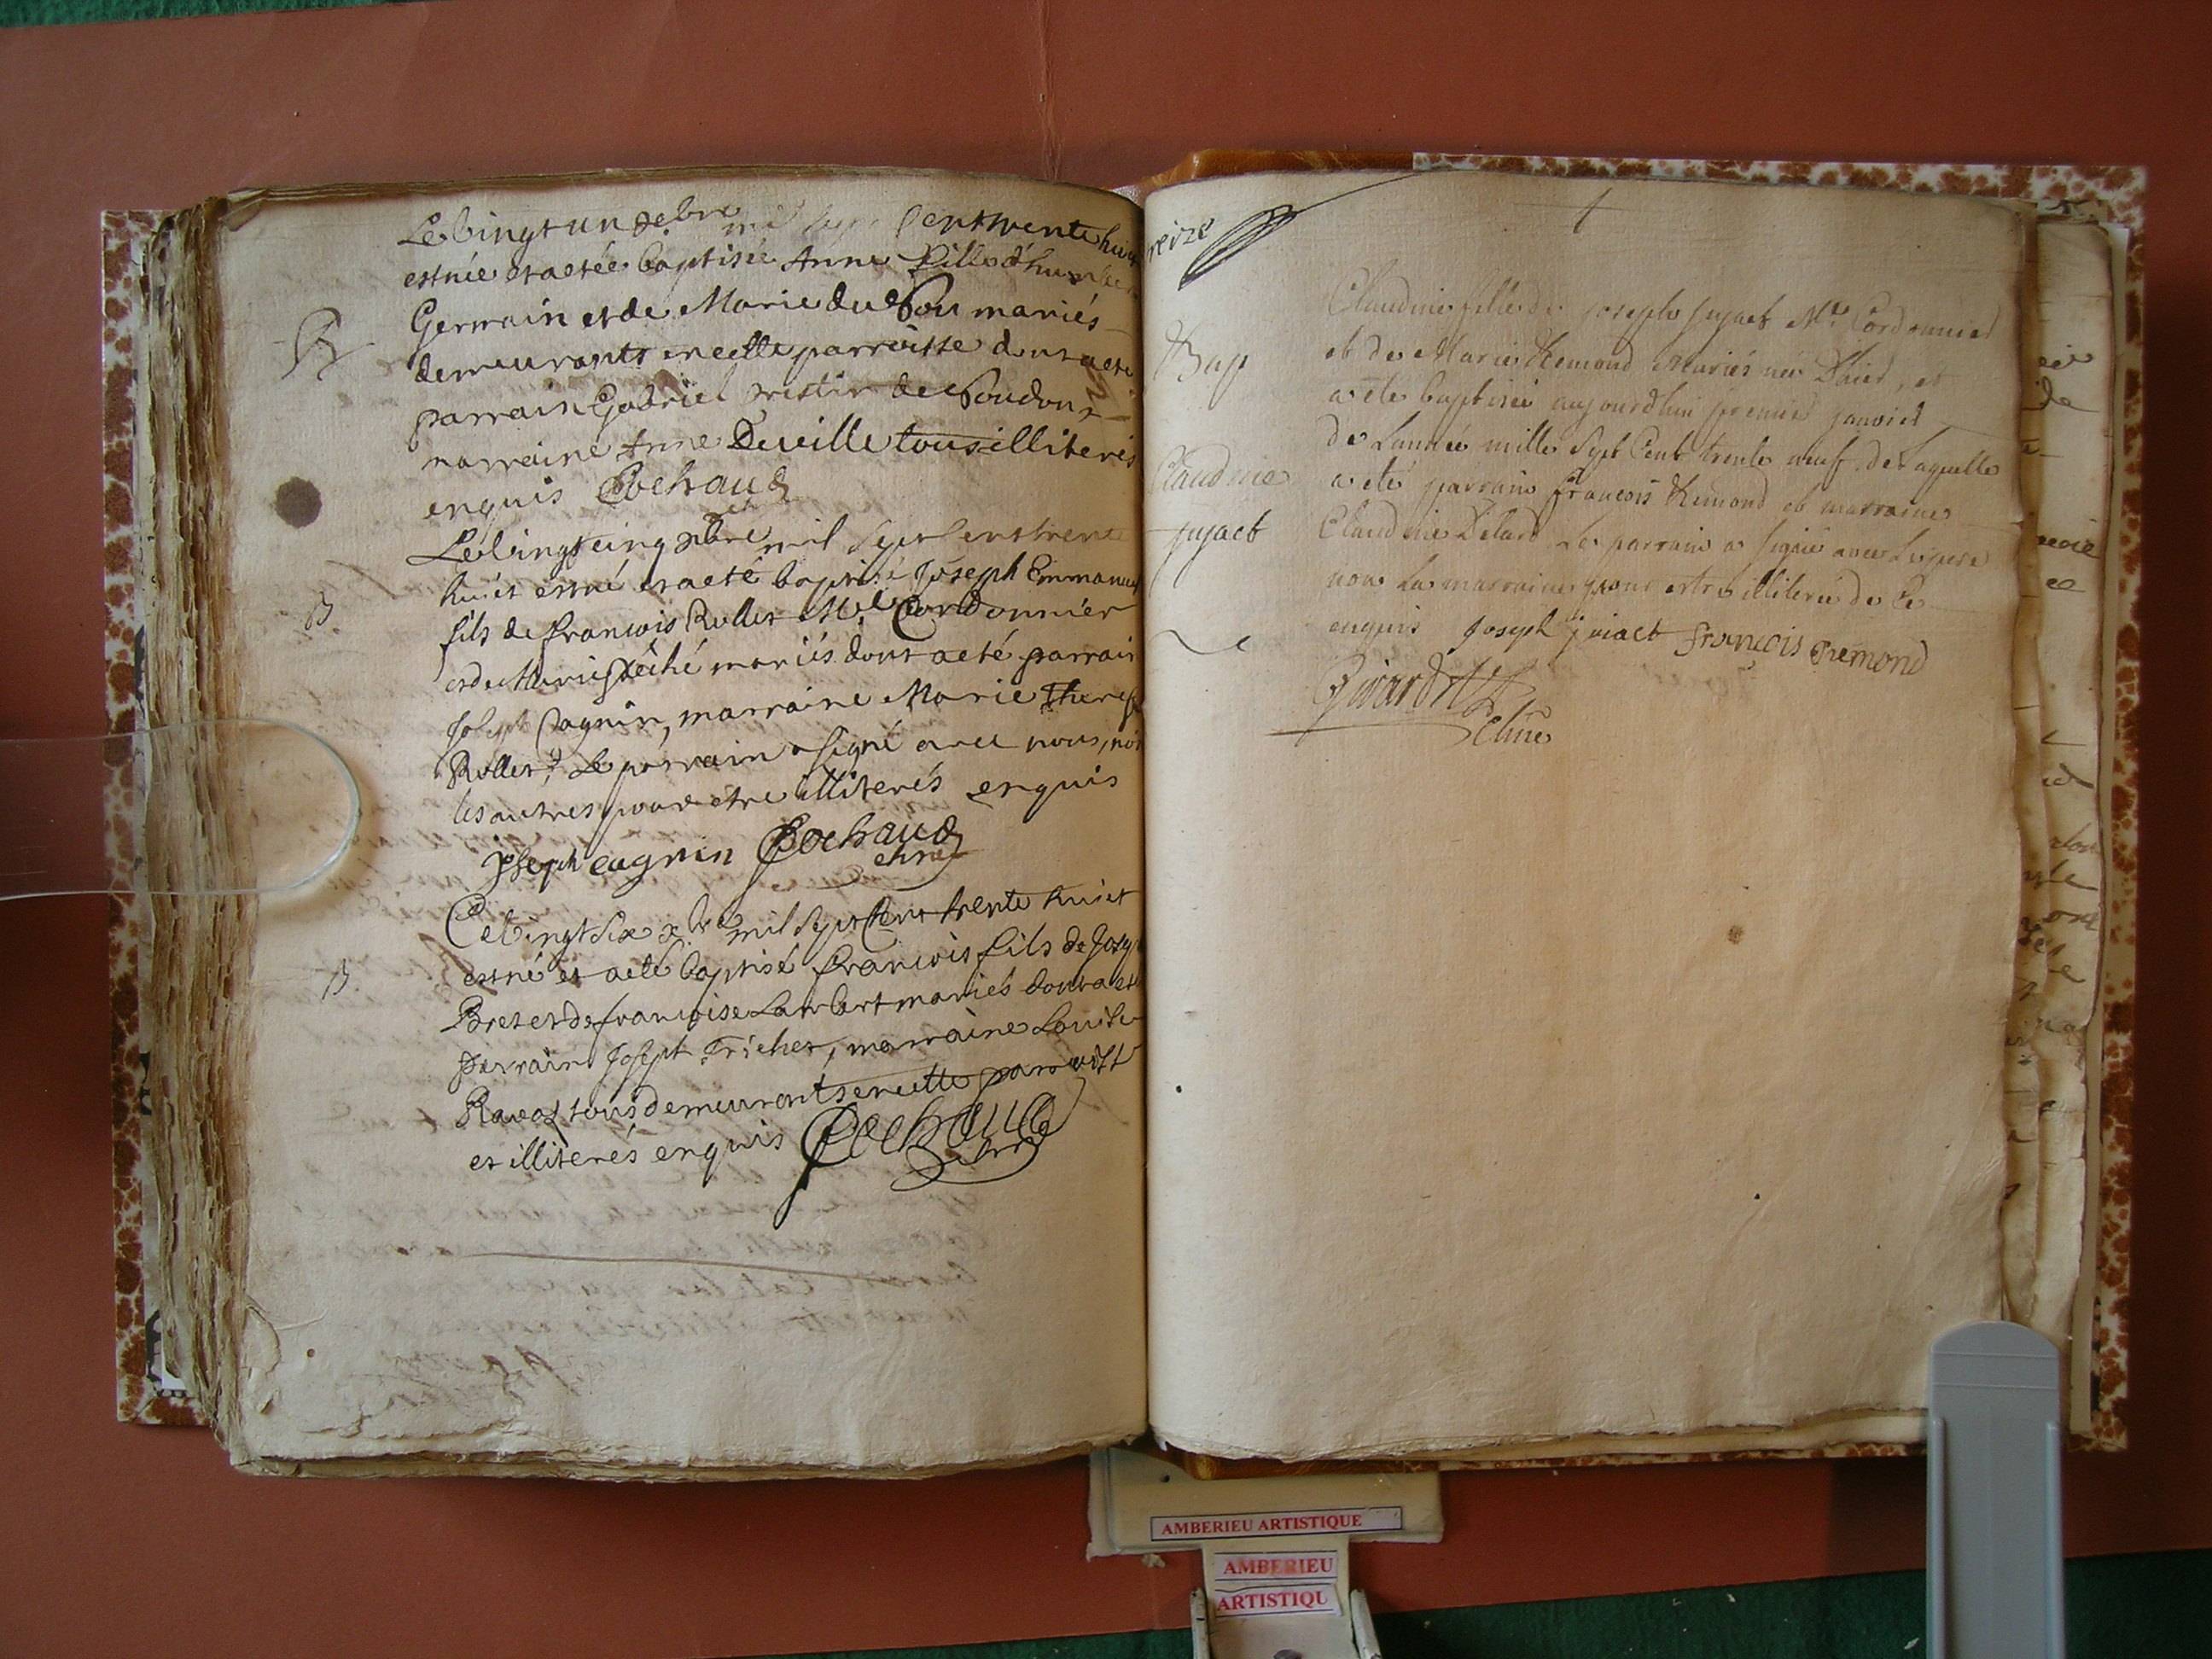 Le vingt un xe.bre mil sept cent trente huit
est née et a etée baptisée Anne fille d'humbert
Germain et de Marie du Pou mariés
demeurants en cette parroisse dont a ete
parrain Gabriel
marraine Anne Deville tous illiterés
enquis Cochaud
Le vingt cinq xbre mil sept cent trente
huit est né et a eté baptisé Joseph Emmanuel
fils de francois Rollet Me. Cordonnier
et de Marie mariés dont a eté parrain
Joseph Cagnin, marraine Marie Therese
Rollet, Le parrain a signé avec nous, non
les autres pour etre illiterés enquis
Joseph cagnin Cochaud
Ce vingt six xbre mil sept cent trente huit
est né et a eté baptisé francois fils de Joseph
Bret et de francoise Lambert mariés dont a eté
parrain Joseph Trichet, marraine Louise
Ravat tous demeurants en cette parroisse
et illiterés enquis Cochaud
B
B
B
reize
Bap
Claudine
Jujact
Claudine fille de joseph Jujact Me Cordonnier
et de Marie Remond mariés née d'hier, et
a eté baptisée aujourdhui premier janvier
de Lannée mille sept Cent trente neuf de Laquelle
a eté parrain francois Remond et marraine
Claudine Le parrain a signé avec Le pere
non La marraine pour estre illiterée de Ce
enquis Joseph juiact francois Remond
Girardet
AMBERIEU ARTISTIQUE
AMBERIEU
ARTISTIQU